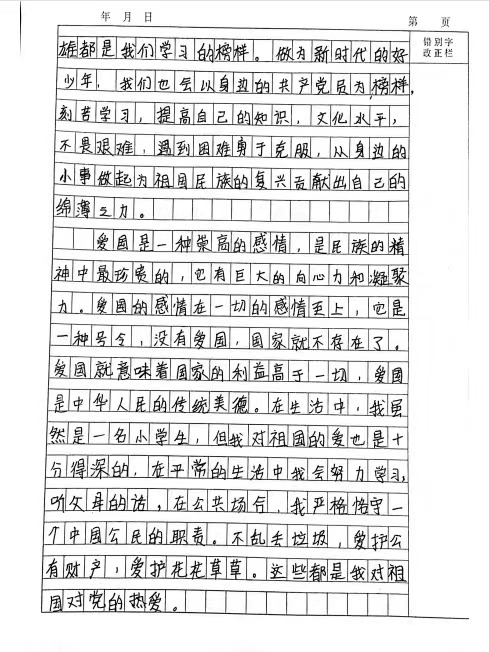 年 月 日 第 页
错别字
改正栏
雄都是我们学习的榜样。做为新时代的好
少年，我们也会以身边的共产党员为榜样，
刻苦学习，提高自己的知识，文化水平，
不畏艰难，遇到困难勇于克服，从身边的
小事做起为祖国民族的复兴贡献出自己的
绵薄之力。
爱国是一种崇高的感情，是民族的精
神中最珍贵的，它有巨大的向心力和凝聚
力。爱国的感情在一切的感情至上，它是
一种号令，没有爱国，国家就不存在了。
爱国就意味着国家的利益高于一切，爱国
是中华人民的传统美德。在生活中，我虽
然是一名小学生，但我对祖国的爱也是十
分得深的，在平常的生活中我会努力学习，
听父母的话，在公共场合，我严格恪守一
个中国公民的职责。不乱丢垃圾，爱护公
有财产，爱护花花草草。这些都是我对祖
国对党的热爱。